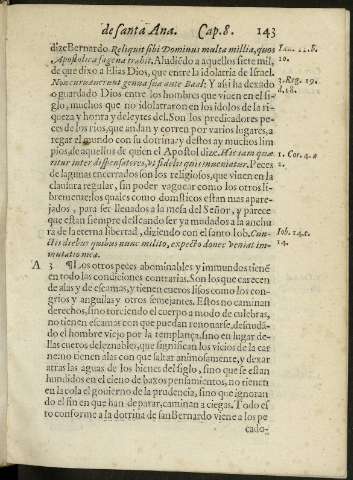 de santa Ana. Cap. 8. 143
dize Bernardo. Reliquit sibi Dominus multa millia, quos
Apostolica sagena trahit. Aludiẽdo a aquellos siete mil,
de que dixo a Elias Dios, que entre la idolatria de Israel.
Non curvaverunt genua sua ante Baal: Y assi ha dexado
o guardado Dios entre los hombres que viuen en el si-
glo, muchos que no idolatraron en los idolos de la ri-
queza y honra y deleytes del. Son los predicadores pe-
ces de los rios, que andan y corren por varios lugares, a
regar el mundo con su dotrina y destos ay muchos lim
pios, de aquellos de quien el Apostol dize. Hic iam quæ
ritur inter dispensatores, vt fidelis quis inueniatur. Peces
de lagunas encerrados son los religiosos, que viuen en la
clausura regular, sin poder vaguear como los otros li-
bremente: los quales como domesticos estan mas apare-
jados, para ser lleuados a la mesa del Señor, y parece
que estan siempre desseando ser ya mudados a la anchu
ra de la eterna libertad, digiendo con el santo Iob. Cun-
ctis diebus quibus nunc milito, expecto donec veniat im-
mutatio mea.
Luc. 22.8.
10.
3. Reg. 19.
d. 18.
1. Cor. 4. a
2.
Iob. 14. c.
14.
A 3 ¶ Los otros peces abominables y immundos tienẽ
en todo las condiciones contrarias. Son los que carecen
de alas y de escamas, y tienen cueros lisos como los con-
grios y anguilas y otros semejantes. Estos no caminan
derechos, sino torciendo el cuerpo a modo de culebras,
no tienen escamas con que puedan renouarse, desnudã-
do el hombre viejo por la templança, sino en lugar de-
llas cueros deleznables, que significan los vicios de la car
ne: no tienen alas con que saltar animosamente, y dexar
atras las aguas de los bienes del siglo, sino que se estan
hundidos en el cieno de baxos pensamientos, no tienen
en la cola el gouierno de la prudencia, sino que ignoran
do el fin en que han de parar, caminan a ciegas. Todo es
to conforme a la dotrina de san Bernardo viene a los pe
cado-